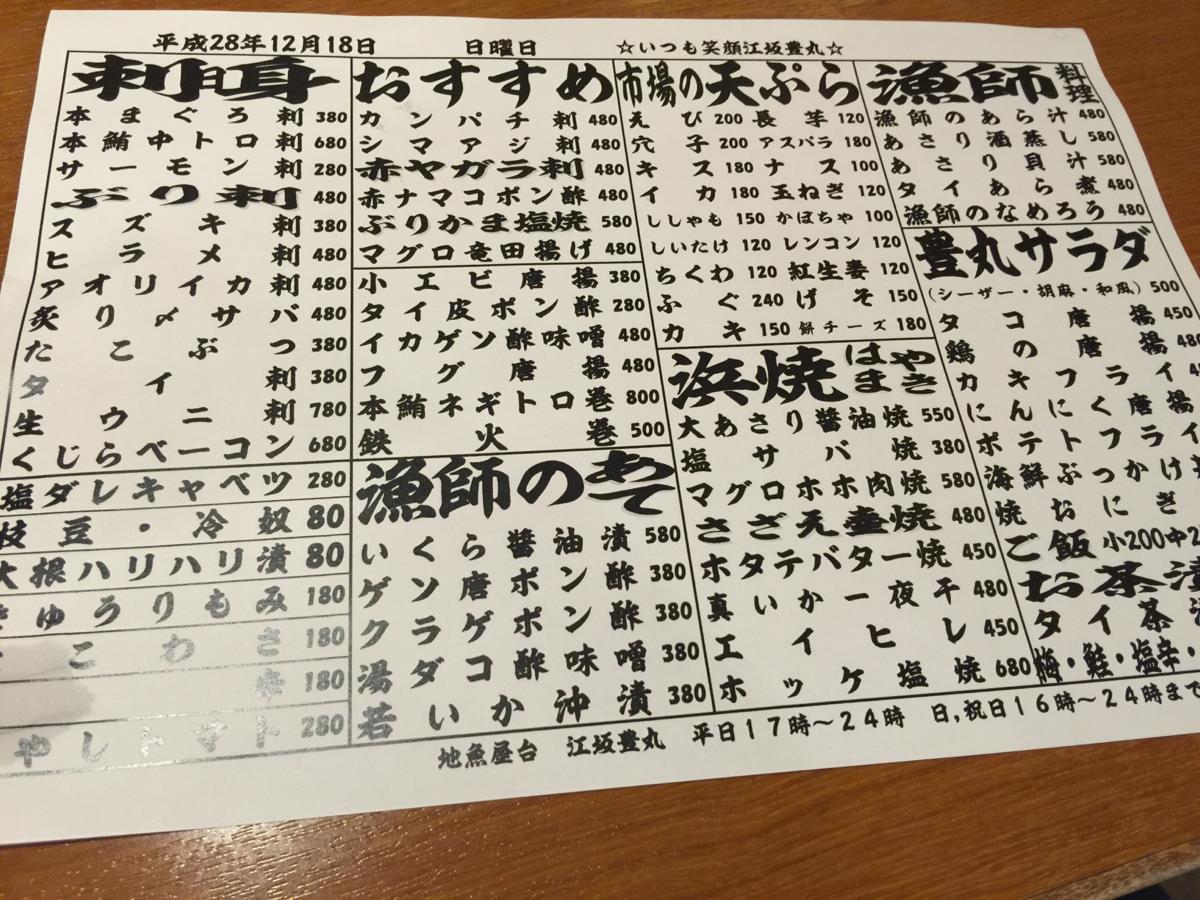 平成28年12月18日 日曜日 ☆いつも笑顔江坂豊丸☆
刺身
本まぐろ刺 380
本鮪中トロ刺 680
サーモン刺 280
ぶり刺 480
スズキ刺 380
ヒラメ刺 480
アオリイカ刺 480
炙り〆サバ 480
たこぶつ 380
タイ刺 380
生ウニ刺 780
くじらベーコン 680
塩ダレキャベツ 280
枝豆・冷奴 80
大根ハリハリ漬 80
きゅうりもみ 180
こわさ 180
180
やしトマト 280
おすすめ
カンパチ刺 480
シマアジ刺 480
赤ヤガラ刺 480
赤ナマコポン酢 480
ぶりかま塩焼 580
マグロ竜田揚げ 480
小エビ唐揚 380
タイ皮ポン酢 280
イカゲソ酢味噌 480
フグ唐揚 480
本鮪ネギトロ巻 800
鉄火巻 500
漁師のあて
いくら醤油漬 580
ゲソ唐ポン酢 380
クラゲポン酢 380
湯ダコ酢味噌 380
若いか沖漬 380
市場の天ぷら
えび 200 長芋 120
穴子 200 アスパラ 180
キス 180 ナス 100
イカ 180 玉ねぎ 120
ししゃも 150 かぼちゃ 100
しいたけ 120 レンコン 120
ちくわ 120 紅生姜 120
ふぐ 240 げそ 150
カキ 150 餅チーズ 180
浜焼 はまやき
大あさり醤油焼 550
塩サバ焼 380
マグロホホ肉焼 580
さざえ壷焼 480
ホタテバター焼 450
真いか一夜干 480
エイヒレ 450
ホッケ塩焼 680
漁師料理
漁師のあら汁 480
あさり酒蒸し 580
あさり貝汁 580
タイあら煮 480
漁師のなめろう 480
豊丸サラダ
(シーザー・胡麻・和風) 500
タコ唐揚 450
鶏の唐揚 480
カキフライ
にんにく唐揚
ポテトフライ
海鮮ぶっかけ
焼おにぎ
ご飯 小200中2
お茶漬
タイ茶漬
梅・鮭・塩辛・
地魚屋台 江坂豊丸 平日17時～24時 日,祝日16時～24時まで